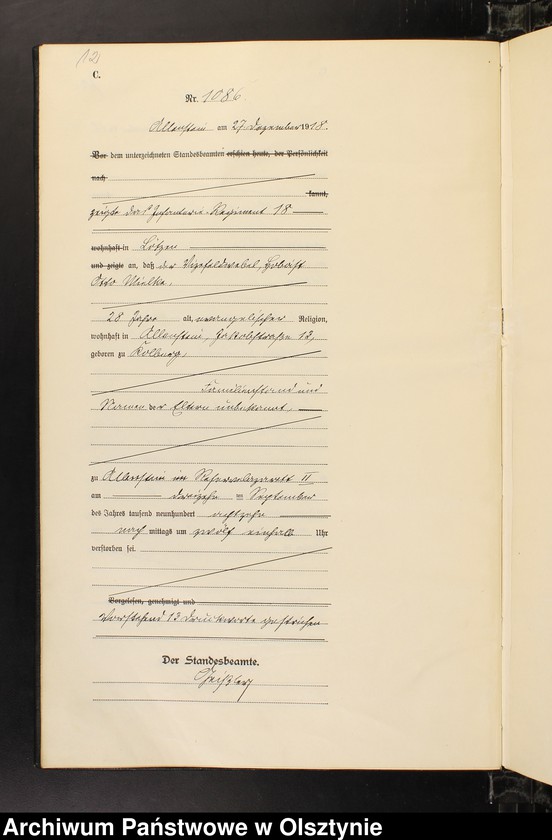 (12)
C.
Nr. 1086
Allenstein am 27 Dezember 1918.
Vor dem unterzeichneten Standesbeamten erschien heute, der Persönlichkeit
nach
kannt,
zeigte das Infanterie-Regiment 18
wohnhaft in Lötzen
und zeigte an, daß der Vizefeldwebel, Hoboist
Otto Mielke,
28 Jahre alt, evangelischer Religion,
wohnhaft in Allenstein, Jakobstraße 12,
geboren zu Kolberg,
Familienstand und
Namen der Eltern unbekannt,
zu Allenstein im Reservelazarett II
am dreizehn September
des Jahres tausend neunhundert achtzehn
nach mittags um zwölf einhalb Uhr
verstorben sei.
Vorgelesen, genehmigt und
Vorstehend 13 Druckworte gestrichen
Der Standesbeamte.
Archiwum Państwowe w Olsztynie